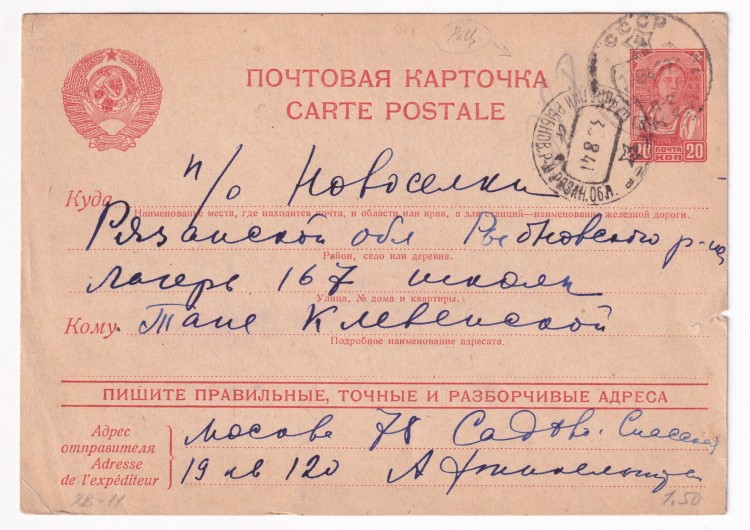 Р-ц
СССР
ПОЧТОВАЯ КАРТОЧКА
CARTE POSTALE
ПОЧТА
20 КОП 20
3.8.41
п/о Новоселки
Куда
Наименование места, где находится почта, и области или края, а для станций—наименование железной дороги.
Рязанской обл Рыбновского р-на
Район, село или деревня.
Лагерь 167 школы
Улица, № дома и квартиры.
Кому Тане Клевенской
Подробное наименование адресата.
ПИШИТЕ ПРАВИЛЬНЫЕ, ТОЧНЫЕ И РАЗБОРЧИВЫЕ АДРЕСА
Адрес отправителя
Adresse de l'expéditeur
Москва 78 Садово. Спасская
19 кв 120 А
2В-11
1.50